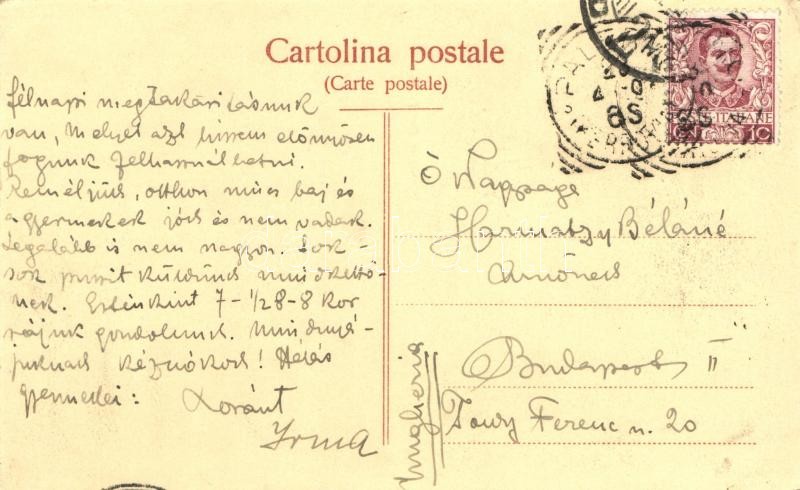 Cartolina postale
(Carte postale)
félnapi megszakításunk
van, melyet azt hiszem előnyösen
fogunk felhasználhatni.
Reméljük, otthon nincs baj és
a gyermekek jók és nem vadak.
Legalább is nem nagyon. Sok-
sok puszit küldünk mindkettő-
nek. Esténkint 7-1/28-8 kor
rájuk gondolunk. Mindnyá-
juknak kézcsókok! Hálás
gyermekei: Loránt
Irma
Ő Nagysága
Harmatzy Béláné
úrnőnek
Budapest II
Toldy Ferenc u. 20
Ungheria
POSTE ITALIANE